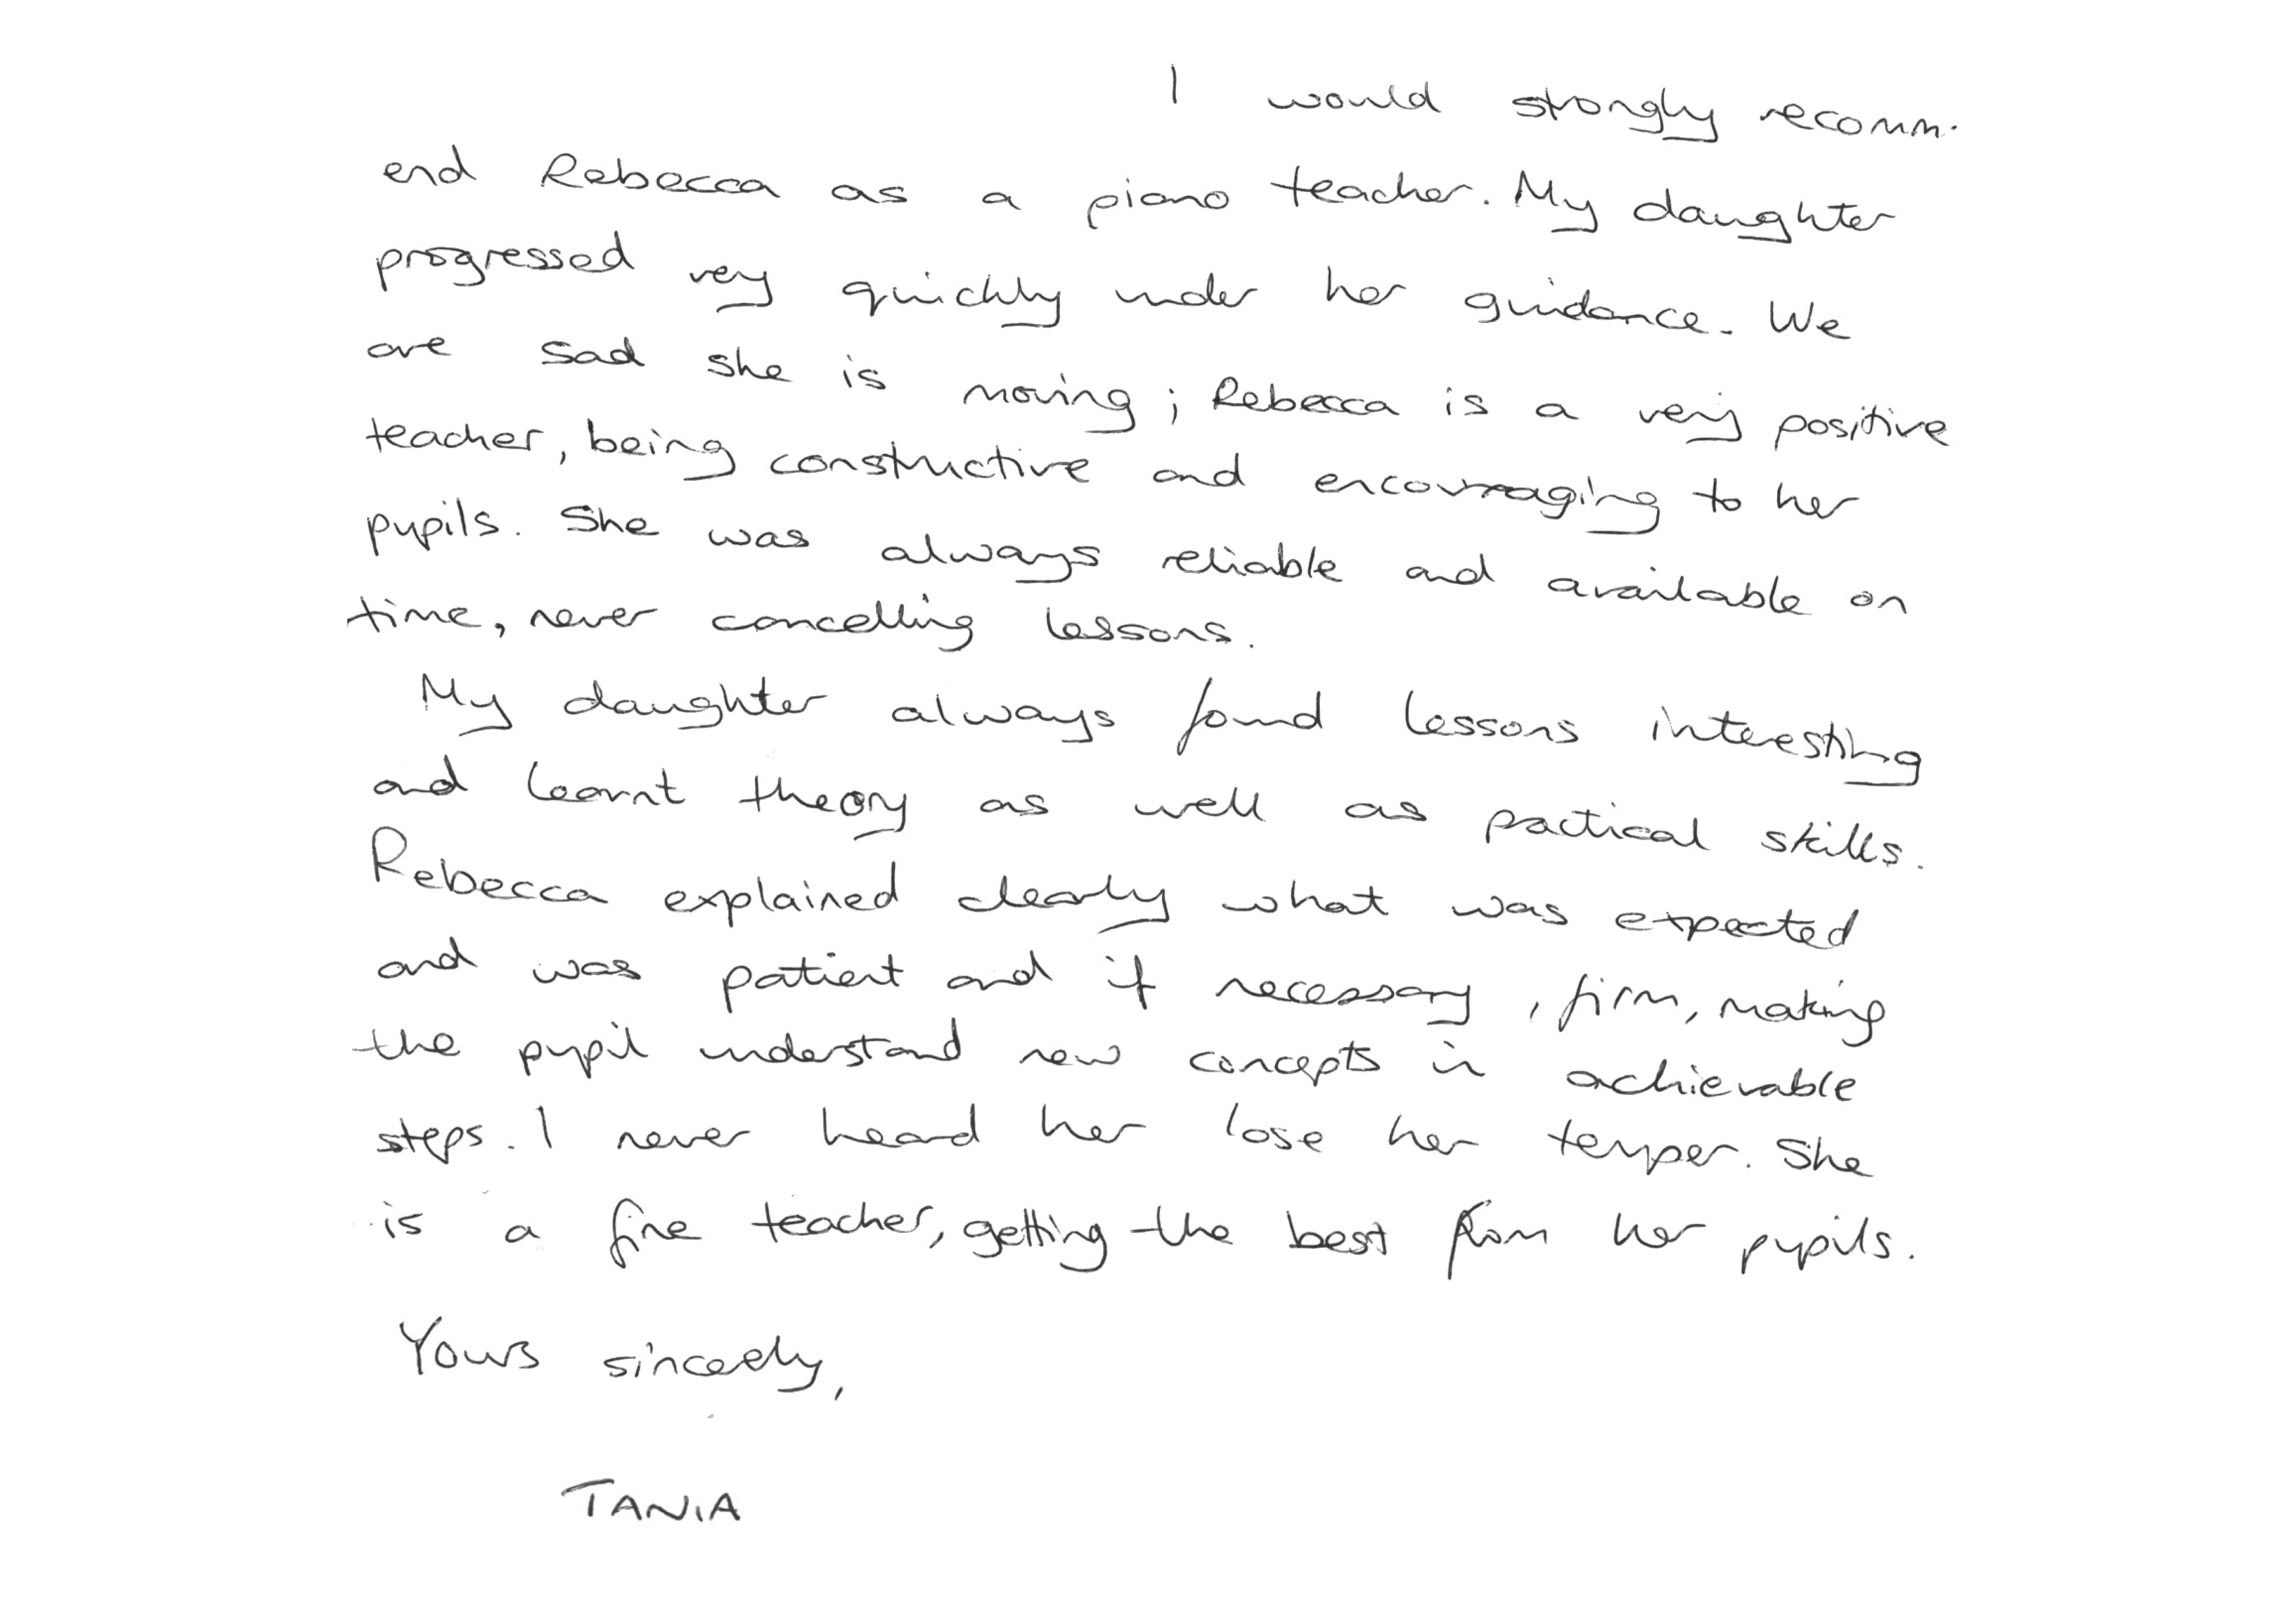 I would strongly recomm-
end Rebecca as a piano teacher. My daughter
progressed very quickly under her guidance. We
are sad she is moving; Rebecca is a very positive
teacher, being constructive and encouraging to her
pupils. She was always reliable and available on
time, never cancelling lessons.
My daughter always found lessons interesting
and learnt theory as well as practical skills.
Rebecca explained clearly what was expected
and was patient and if necessary, firm, making
the pupil understand new concepts in achievable
steps. I never heard her lose her temper. She
is a fine teacher, getting the best from her pupils.
Yours sincerely,
TANIA